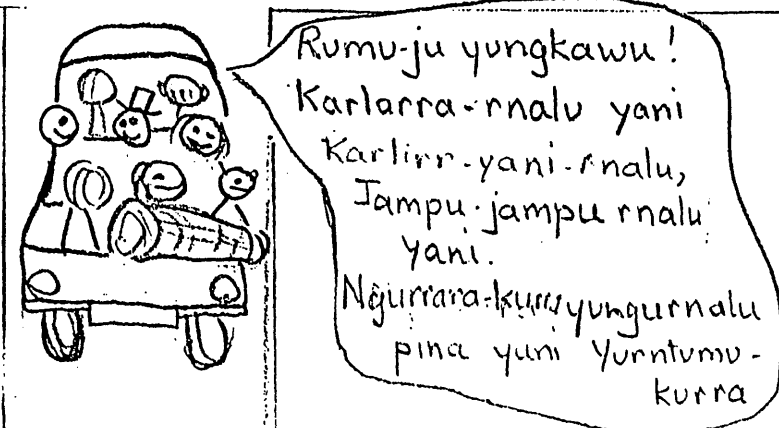 Rumu-ju yungkawu!
Karlarra-rnalu yani
Karlirr-yani-rnalu,
Jampu-jampu rnalu
yani.
Ngurrara-kurra yungurnalu
pina yani Yurntumu-
kurra